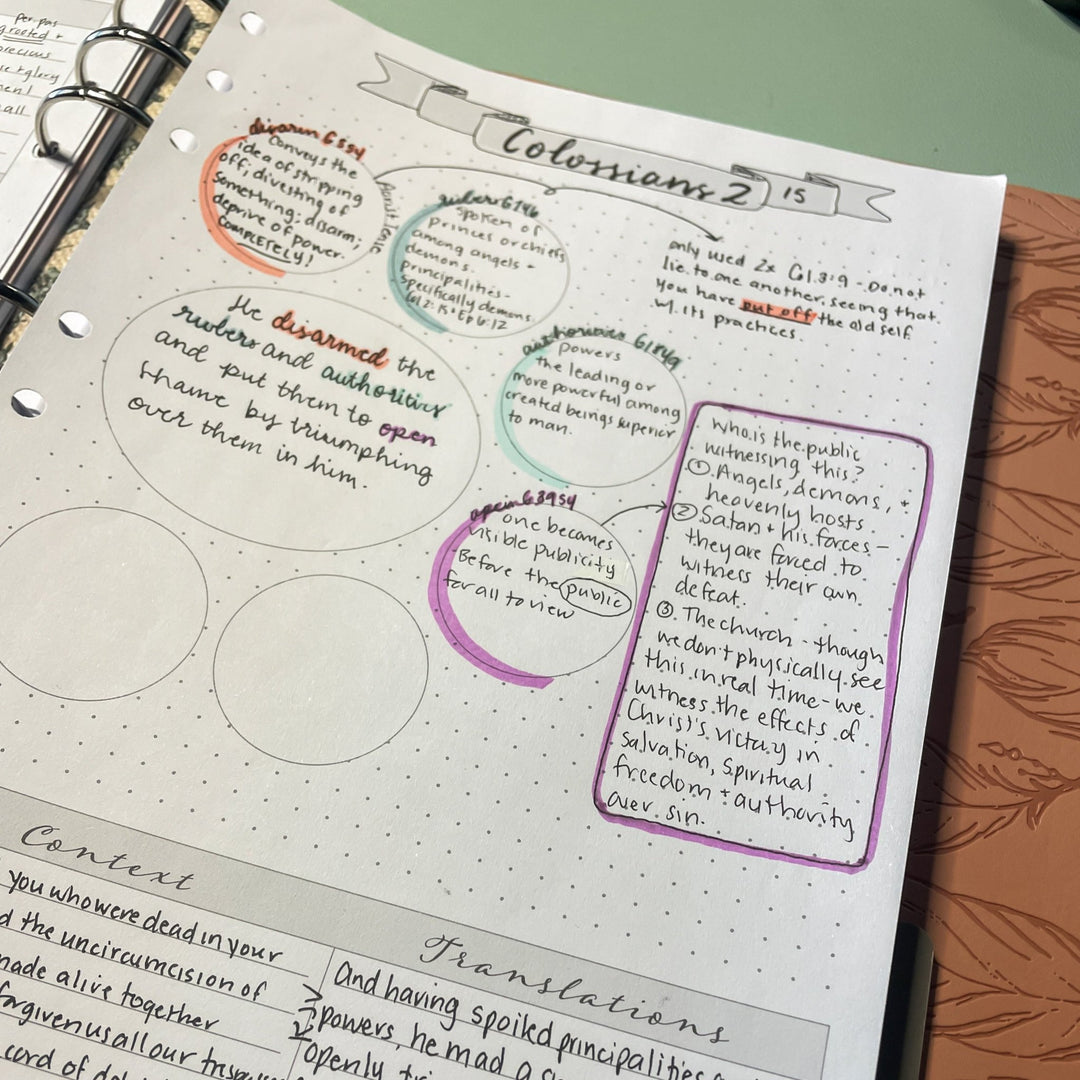 per pas
rooted +
precious
ment
all
Colossians 2 15
disarm G554
Conveys the
idea of stripping
off; divesting of
something; disarm;
deprive of power.
COMPLETELY!
rulers G746
spoken of
princes or chiefs
among angels +
demons.
principalities-
specifically demons.
Col 2:15 + Ep 6:12
only used 2x Col.3:9 - Do not
lie to one another, seeing that
you have put off the old self
w/ its practices.
authorities G1849
powers
the leading or
more powerful among
created beings superior
to man.
He disarmed the
rulers and authorities
and put them to open
shame by triumphing
over them in him.
open G3954
one becomes
visible publicity
Before the public
for all to view
Who is the public
witnessing this?
① Angels, demons, +
heavenly hosts
② Satan + his forces -
they are forced to
witness their own
defeat.
③ The church - though
we don't physically see
this in real time - we
witness the effects of
Christ's victory in
salvation, spiritual
freedom + authority
over sin.
Context
you who were dead in your
d the uncircumcision of
made alive together
forgiven us all our
cord of
Translations
And having spoiled principalities
powers, he mad a
openly